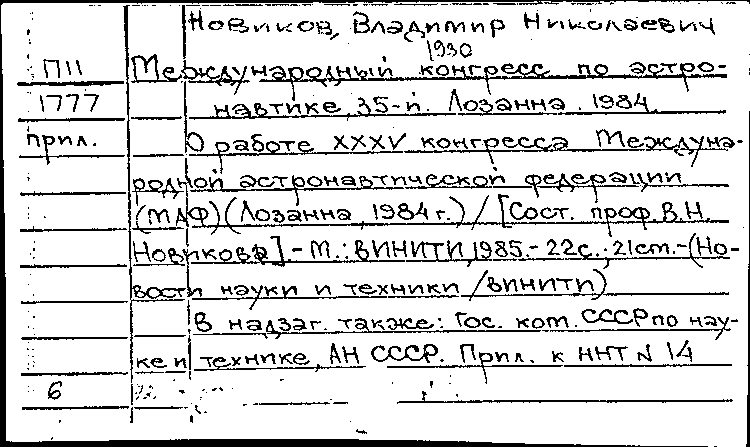 Новиков, Владимир Николаевич
1930
П11 Международный конгресс по астро-
1777 навтике, 35-й. Лозанна. 1984.
прил. О работе XXXV конгресса Междуна-
родной астронавтической федерации
(МАФ) (Лозанна, 1984 г.) / [Сост. проф. В.Н.
Новикова]. - М.: ВИНИТИ, 1985. - 22 с.; 21 cm. - (Но-
вости науки и техники / ВИНИТИ)
В надзаг. также: Гос. ком. СССР по нау-
ке и технике, АН СССР. Прил. к ННТ N 14
6